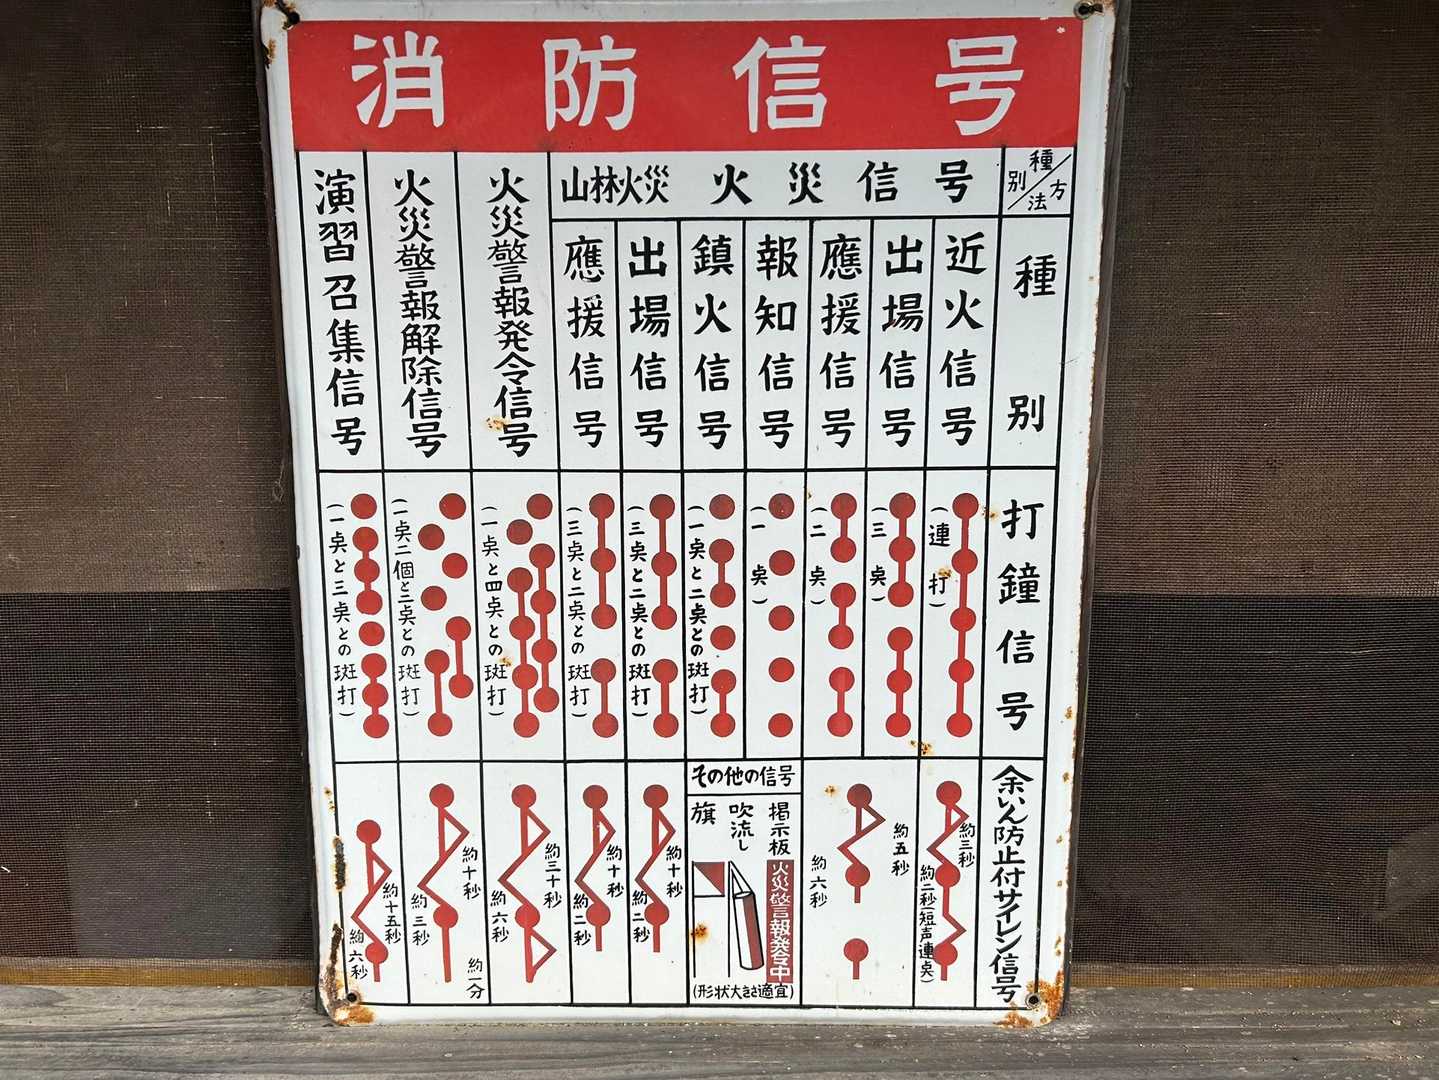 消防信号
種別／方法
火災信号
山林火災
種別
近火信号
出場信号
應援信号
報知信号
鎮火信号
出場信号
應援信号
火災警報発令信号
火災警報解除信号
演習召集信号
打鐘信号
(連打)
(三奌)
(二奌)
(一奌)
(一奌と二奌との斑打)
(三奌と二奌との斑打)
(三奌と二奌との斑打)
(一奌と四奌との斑打)
(一奌二個と二奌との斑打)
(一奌と三奌との斑打)
余いん防止付サイレン信号
約三秒
約二秒(短声連奌)
約五秒
約六秒
その他の信号
掲示板
吹流し
旗
火災警報発令中
(形状大きさ適宜)
約十秒
約二秒
約十秒
約二秒
約三十秒
約六秒
約一分
約十秒
約三秒
約十五秒
約六秒